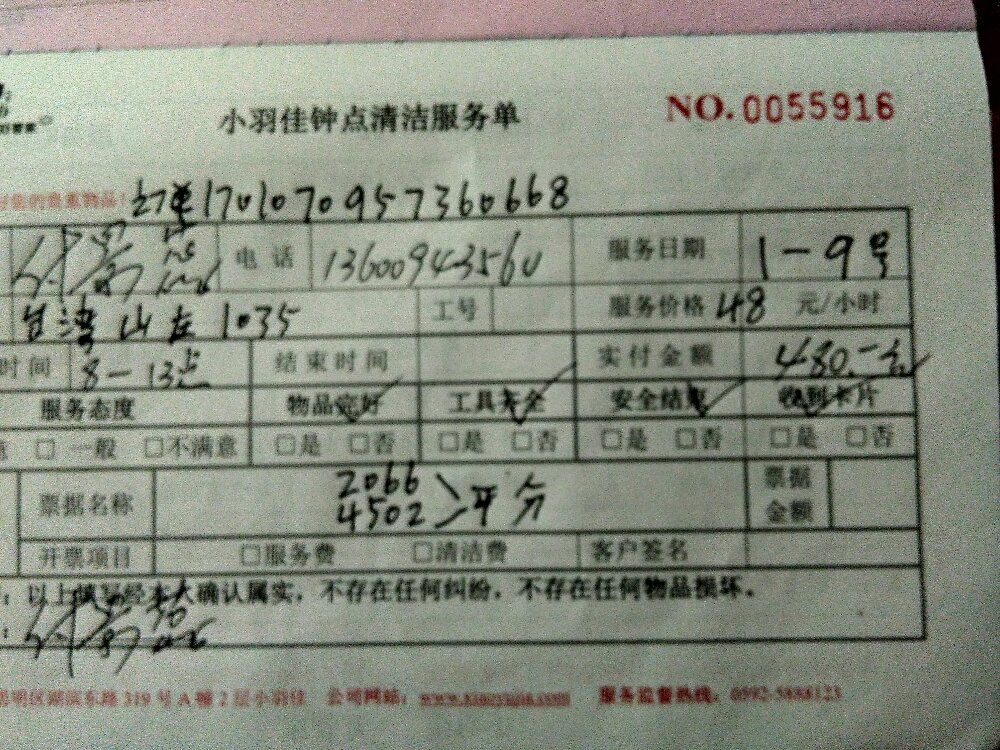 小羽佳钟点清洁服务单 NO.0055916
的贵重物品! 订单1701070957360668
电话 13600943560 服务日期 1-9号
台湾山庄1035 工号 服务价格 48 元/小时
时间 8-13点 结束时间 实付金额 480.-元
服务态度 物品完好 工具齐全 安全结束 收到卡片
意 □一般 □不满意 □是 □否 □是 □否 □是 □否 □是 □否
票据名称 2066 4502 平分 票据金额
开票项目 □服务费 □清洁费 客户签名
:以上填写经本人确认属实,不存在任何纠纷,不存在任何物品损坏。
思明区湖滨东路319号A幢2层小羽佳 公司网站:www.xiaoyujia.com 服务监督热线:0592-5888123